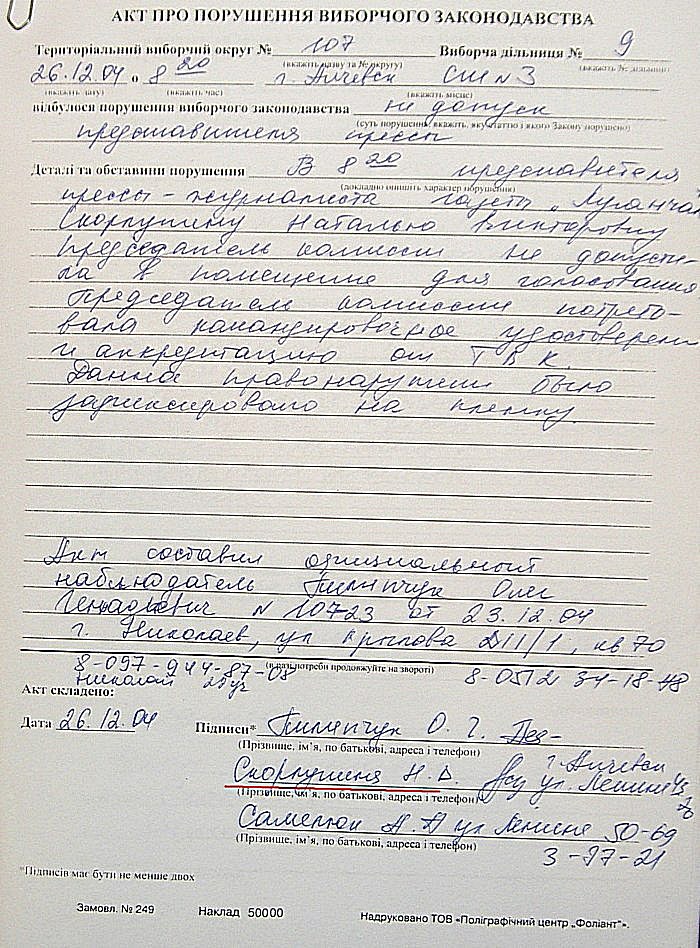 АКТ ПРО ПОРУШЕННЯ ВИБОРЧОГО ЗАКОНОДАВСТВА
Територіальний виборчий округ № 107 Виборча дільниця № 9
(вкажіть назву та № округу) (вкажіть № дільниці)
26.12.04 о 8 20 г. Алчевск СШ N 3
(вкажіть дату) (вкажіть час) (вкажіть місце)
відбулося порушення виборчого законодавства не допуск
(суть порушення, вкажіть, яку статтю і якого Закону порушено)
представителя прессы
Деталі та обставини порушення В 8 20 представителя
(докладно опишіть характер порушення)
прессы - журналиста газеты "Луганчан
Скорпушину Наталью Викторовну
председатель комиссии не допусти-
ла в помещение для голосования
Председатель комиссии потребо-
вала командировочное удостоверени
и аккредитацию от ТВК
Данное правонарушени было
зафиксировано на пленку.
Акт составил официальный
наблюдатель Пилипчук Олег
Геннадиевич N 10723 от 23.12.04
г. Николаев, ул Крылова Д11/1, кв 70
(в разі потреби продовжуйте на звороті)
8-097-944-87-08 8-0512 34-18-48
Николай
Акт складено:
Дата 26.12.04 Підписи* Пилипчук О. Г.
(Прізвище, ім'я, по батькові, адреса і телефон)
г. Алчевск
Скорпушина Н. ул. Ленина
(Прізвище, ім'я, по батькові, адреса і телефон)
А. А ул Ленина 50-69
(Прізвище, ім'я, по батькові, адреса і телефон)
3-77-21
*Підписів має бути не менше двох
Замовл. № 249 Наклад 50000 Надруковано ТОВ «Поліграфічний центр „Фоліант“».